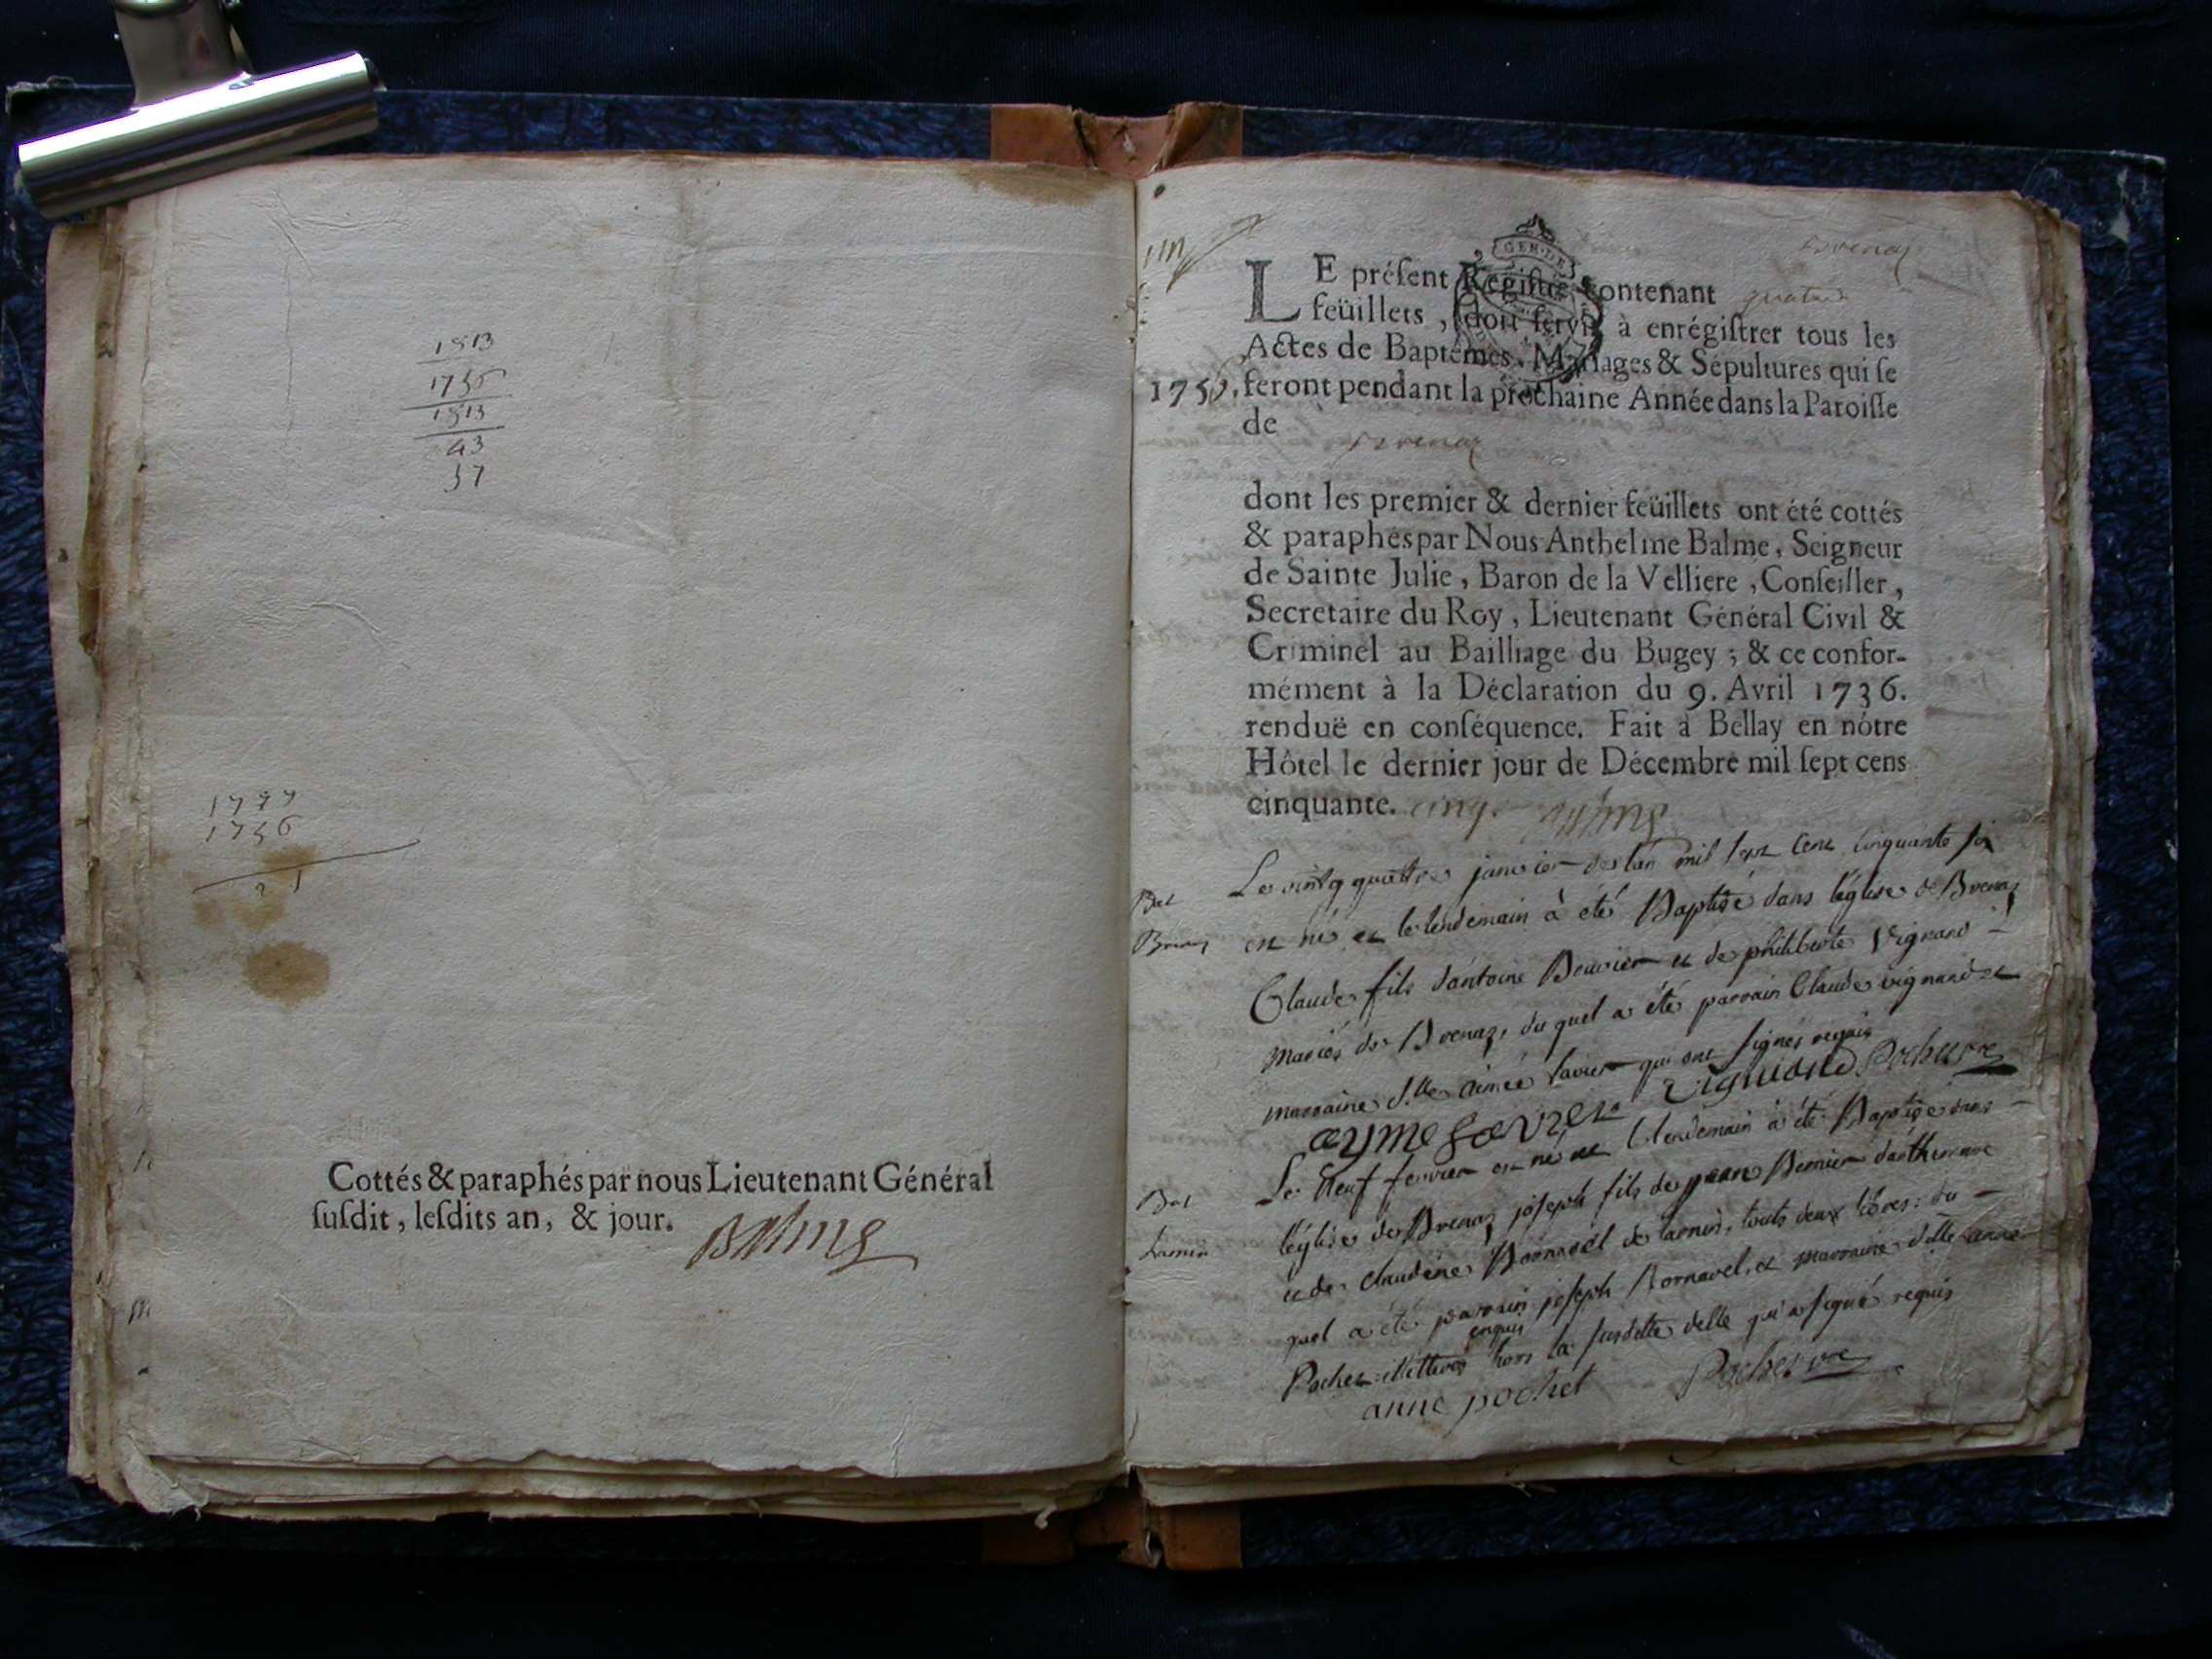 1813
1756
1813
43
57
1777
1756
21
Cottés & paraphés par nous Lieutenant Général
ſuſdit, leſdits an, & jour.
Balme
GEN·DE
Brenaz
LE préſent Regiſtre contenant quatre
feüillets, doit ſervir à enrégiſtrer tous les
Actes de Baptêmes, Mariages & Sépultures qui ſe
1756. feront pendant la prochaine Année dans la Paroiſſe
de Brenaz
dont les premier & dernier feüillets ont été cottés
& paraphés par Nous Anthelme Balme, Seigneur
de Sainte Julie, Baron de la Velliere, Conſeiller,
Secretaire du Roy, Lieutenant Général Civil &
Criminel au Bailliage du Bugey ; & ce confor-
mément à la Déclaration du 9. Avril 1736.
renduë en conſéquence. Fait à Bellay en nôtre
Hôtel le dernier jour de Décembre mil ſept cens
cinquante. cinq. Balme
Bat
Brenaz
Le vintg quattre janvier de lan mil sept cent cinquante six
est né et le lendemain à été Baptisé dans l'église de Brenaz
Claude fils d'antoine Bouvier et de philiberte Vignand
mariés de Brenaz, du quel a été parrain Claude vignand et
marraine d.lle aimée savier qui ont signés requis
ayme savier Vigniand Pochet vre
Bat
Larnin
Le Neuf fevrier est né et le lendemain à été Baptisé dans
l'église de Brenaz joseph fils de Bernier
et de claudine Bornavel de larnin, touts deux libres: du
quel a été parrain joseph Bornavel, et marraine d.lle anne
Pochet illitteres enquis hors la susditte delle qui a signé requis
anne pochet Pochet vre